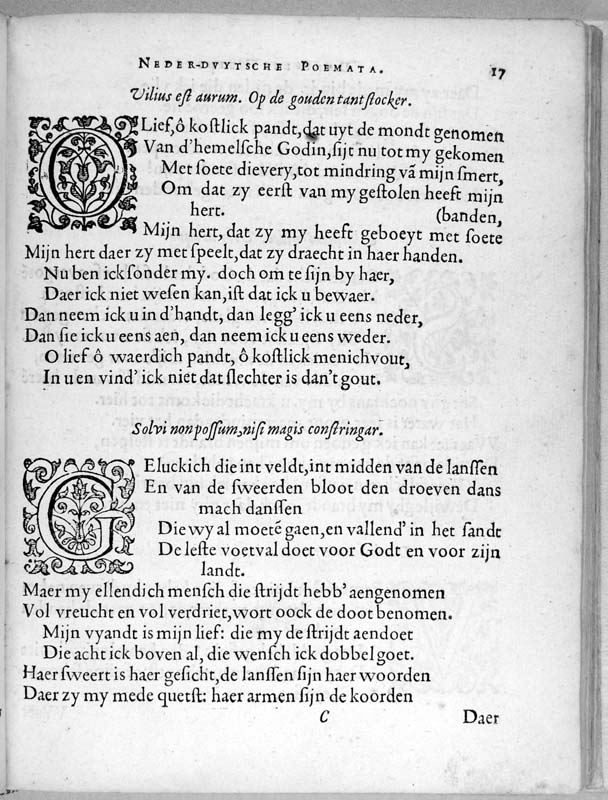 NEDER-DVYTSCHE POEMATA. 17
Vilius est aurum. Op de gouden tantstocker.
O Lief, ô kostlick pandt, dat uyt de mondt genomen
Van d'hemelsche Godin, sijt nu tot my gekomen
Met soete dievery, tot mindring vā mijn smert,
Om dat zy eerst van my gestolen heeft mijn
hert. (banden,
Mijn hert, dat zy my heeft geboeyt met soete
Mijn hert daer zy met speelt, dat zy draecht in haer handen.
Nu ben ick sonder my. doch om te sijn by haer,
Daer ick niet wesen kan, ist dat ick u bewaer.
Dan neem ick u in d'handt, dan legg' ick u eens neder,
Dan sie ick u eens aen, dan neem ick u eens weder.
O lief ô waerdich pandt, ô kostlick menichvout,
In u en vind' ick niet dat slechter is dan't gout.
Solvi non possum, nisi magis constringar.
Geluckich die int veldt, int midden van de lanssen
En van de sweerden bloot den droeven dans
mach danssen
Die wy al moetē gaen, en vallend' in het sandt
De leste voetval doet voor Godt en voor zijn
landt.
Maer my ellendich mensch die strijdt hebb' aengenomen
Vol vreucht en vol verdriet, wort oock de doot benomen.
Mijn vyandt is mijn lief: die my de strijdt aendoet
Die acht ick boven al, die wensch ick dobbel goet.
Haer sweert is haer gesicht, de lanssen sijn haer woorden
Daer zy my mede quetst: haer armen sijn de koorden
C Daer